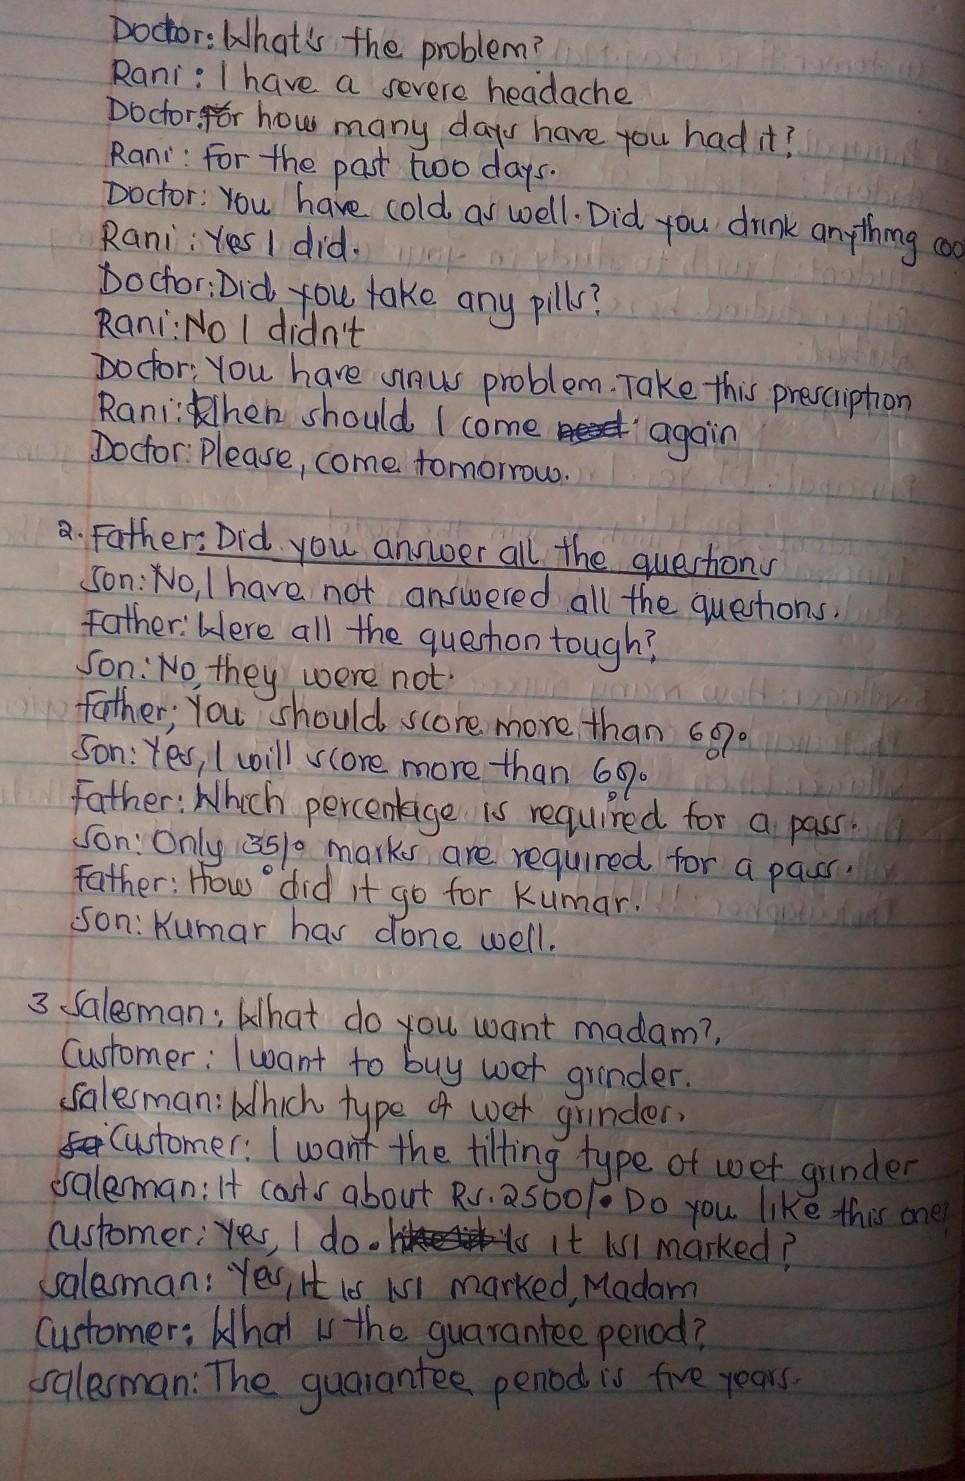 Doctor: What's the problem?
Rani: I have a severe headache
Doctor: For how many days have you had it?
Rani: For the past two days.
Doctor: You have cold as well. Did you drink anything coo
Rani: Yes I did.
Doctor: Did you take any pills?
Rani: No I didn't
Doctor: You have sinus problem. Take this prescription
Rani: When should I come again
Doctor: Please, come tomorrow.
2. Father: Did you answer all the questions
Son: No, I have not answered all the questions.
Father: Were all the question tough?
Son: No, they were not.
Father: You should score more than 60%
Son: Yes, I will score more than 60%
Father: Which percentage is required for a pass.
Son: Only 35% marks are required for a pass.
Father: How did it go for Kumar.
Son: Kumar has done well.
3 Salesman: What do you want madam?,
Customer: I want to buy wet grinder.
Salesman: Which type of wet grinder.
Customer: I want the tilting type of wet grinder
Salesman: It costs about Rs. 2500/. Do you like this one?
Customer: Yes, I do. Is it ISI marked?
Salesman: Yes, it is ISI marked, Madam
Customer: What is the guarantee period?
Salesman: The guarantee period is five years.